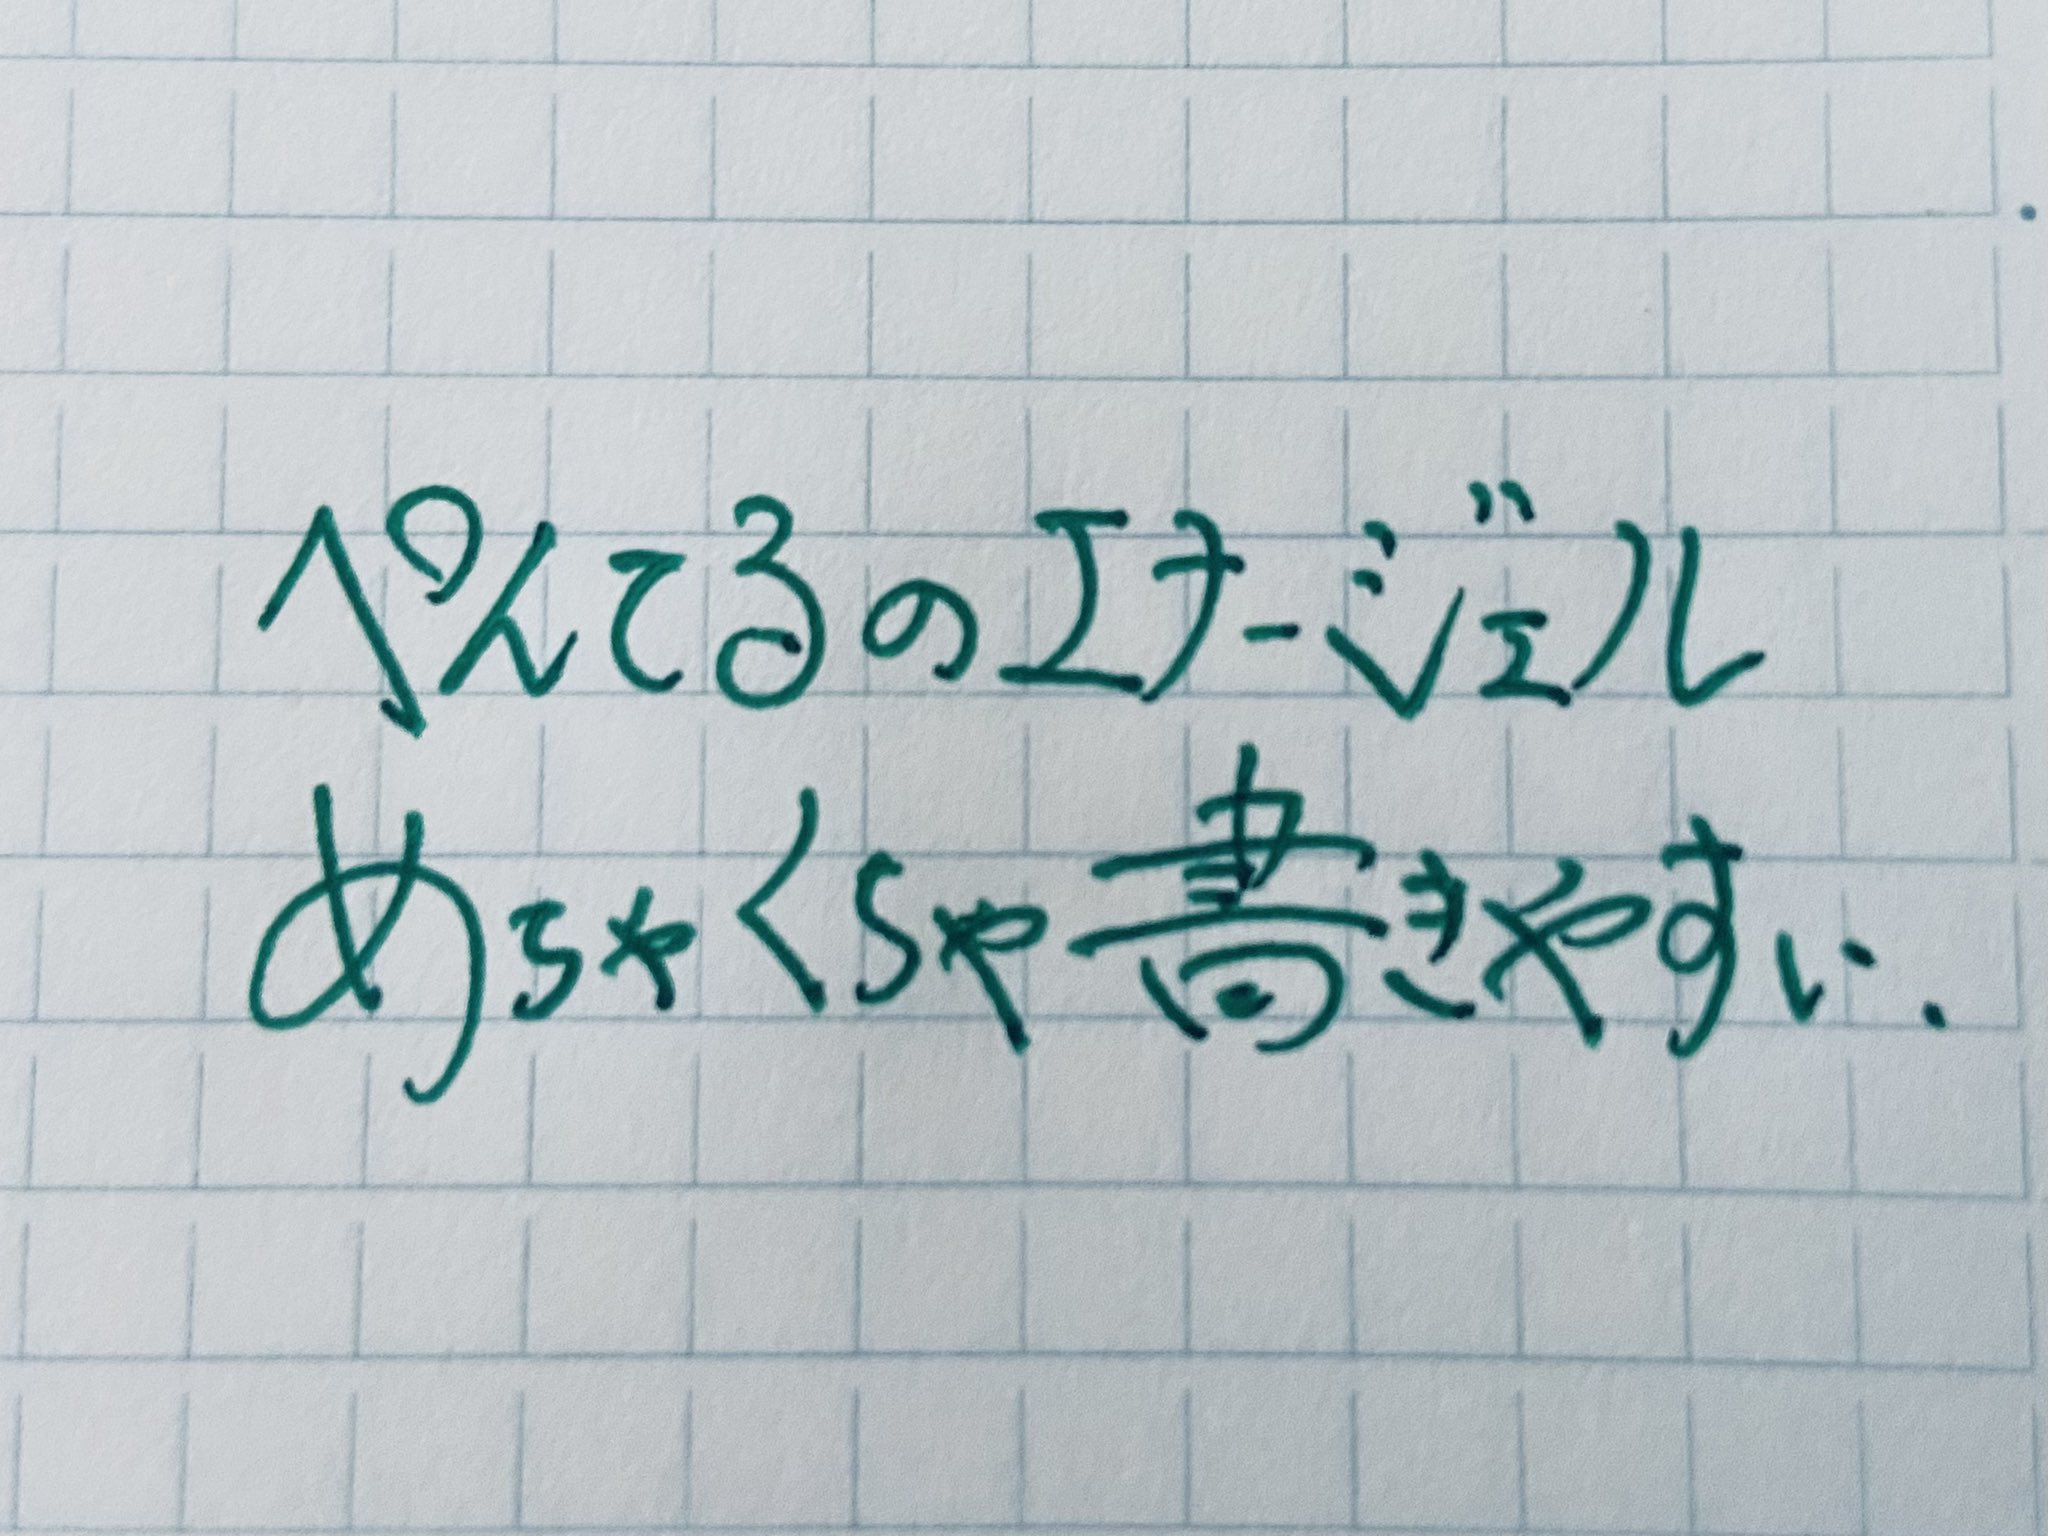 ぺんてるのエナージェル
めちゃくちゃ書きやすい.